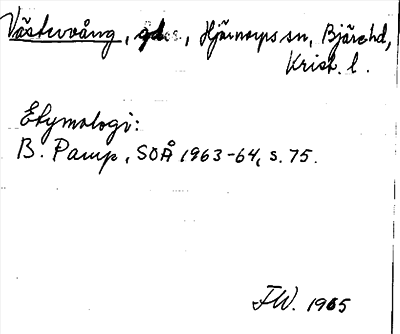 Västervång, gdes., Hjärnarps sn, Bjäre hd,
Krist. l.
Etymologi:
B. Pamp, SOÅ 1963-64, s. 75.
FW. 1965